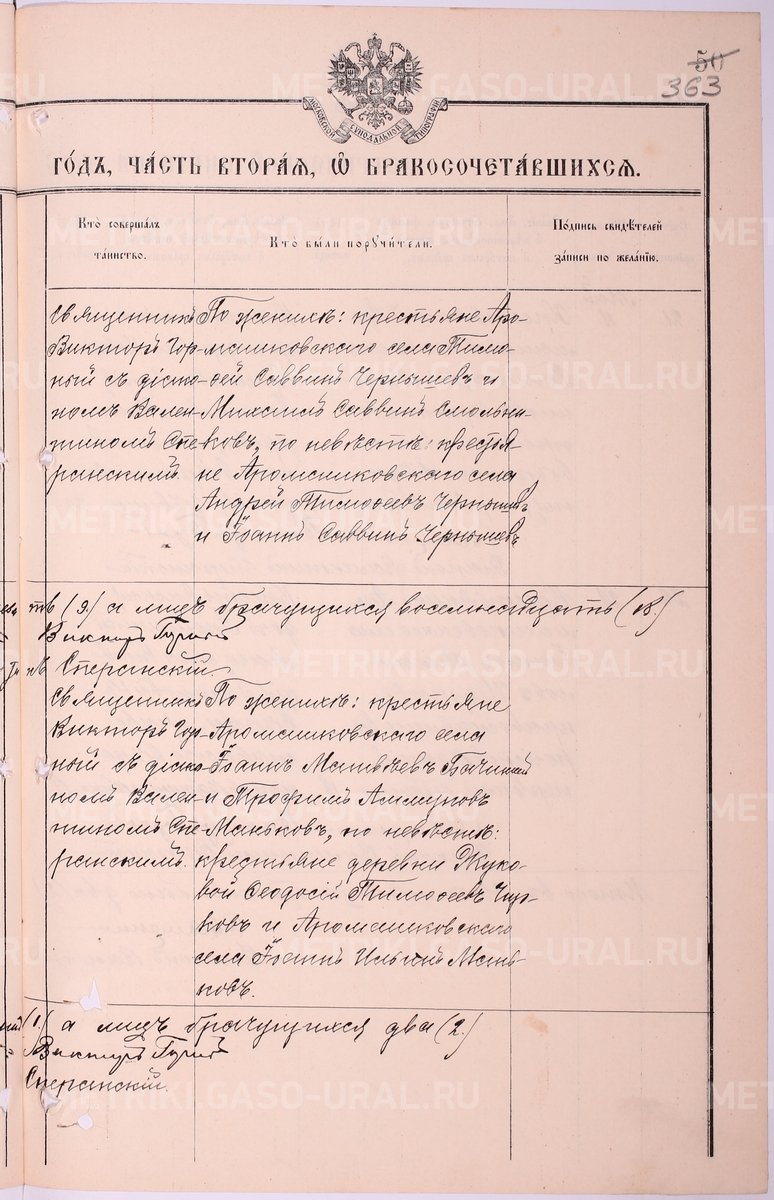 50
363
МОСКОВСКОЙ СѴНОДАЛЬНОЙ ТИПОГРАФІИ
ГО́ДЪ, ЧА́СТЬ ВТОРА́Я, Ѽ БРАКОСОЧЕТА́ВШИХСЯ.
Кто̀ соверша́лъ
та́инство.
Кто̀ бы́ли порꙋчи́тели.
По́дпись свидѣ́телей
за́писи по жела́нїю.
Священникъ
Викторъ Гор-
ный съ діако-
номъ Вален-
тиномъ Спе-
ранскимъ.
По женихѣ: крестьяне Аро-
машковскаго села Тимо-
фей Саввинъ Чернышевъ и
Михаилъ Саввинъ Смольни-
ковъ, по невѣстѣ: крестья-
не Аромашковскаго села
Андрей Тимофеевъ Чернышевъ
и Іоаннъ Саввинъ Чернышевъ
(9.) а лицъ брачущихся восемнадцать (18.)
Викторъ Горный
Сперанскій.
Священникъ
Викторъ Гор-
ный съ діако-
номъ Вален-
тиномъ Спе-
ранскимъ.
По женихѣ: крестьяне
Аромашковскаго села
Іоаннъ Матвѣевъ
и Трофимъ
Маньковъ, по невѣстѣ:
крестьяне деревни Жуко-
вой Феодосій Тимофеевъ Чир-
ковъ и Аромашковскаго
села Іоаннъ Ильинъ Мань-
ковъ.
(1.) а лицъ брачущихся два (2.)
Викторъ Горный
Сперанскій.
METRIKI.GASO-URAL.RU